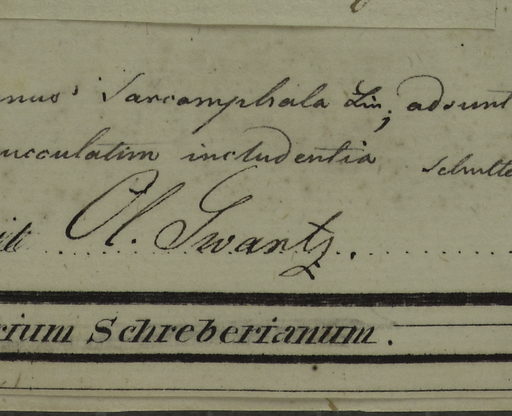 Sarcomphala Lin; adsunt
cucculatim includentia Schulte
Ol. Swartz.
rium Schreberianum.